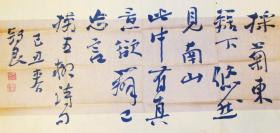 採菊東
籬下悠然
見南山
此中有真
意欲辯已
忘言
五柳诗句
己丑春
良